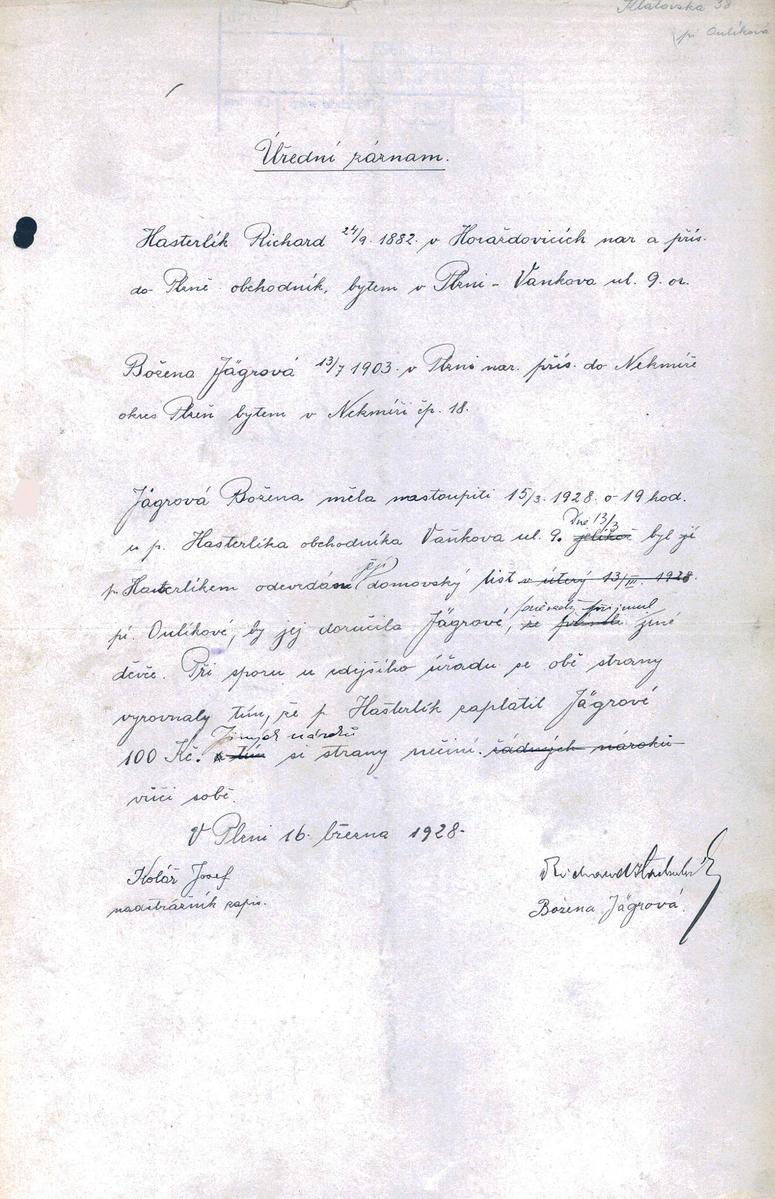 Klatovská 38
pí Oulíková
Úřední záznam.
Hasterlík Richard 24/9. 1882. v Horažďovicích nar a přís.
do Plzně obchodník, bytem v Plzni - Vaňkova ul. 9. or.
Božena Jägrová 13/7 1903. v Plzni nar. přís. do Nekmíře
okres Plzeň bytem v Nekmíři čp. 18.
Jägrová Božena měla nastoupiti 15/3. 1928. o 19 hod.
Dne 13/3
u p. Hasterlíka obchodníka Vaňkova ul. 9. jelikož byl jí
její
p. Hasterlíkem odevzdán domovský list v úterý 13/III. 1928.
poněvadž přijmul
pí. Oulíkové, by jej doručila Jägrové, že jiné
děvče. Při sporu u zdejšího úřadu se obě strany
vyrovnaly tím, že p. Hasterlík zaplatil Jägrové
Jiných nároků
100 Kč. tím si strany nečiní žádných nároků
vůči sobě.
V Plzni 16. března 1928.
Kolář Josef
nadstrážník zapis.
Richard Hasterlík
Božena Jägrová.